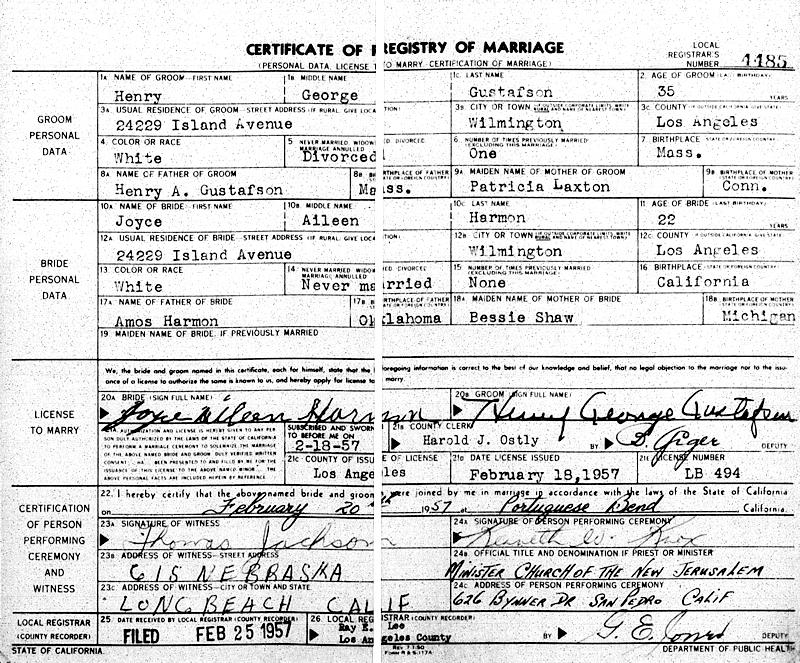 CERTIFICATE OF REGISTRY OF MARRIAGE
(PERSONAL DATA, LICENSE TO MARRY CERTIFICATION OF MARRIAGE)
LOCAL REGISTRAR'S NUMBER 4485
GROOM PERSONAL DATA
1A NAME OF GROOM—FIRST NAME 1B MIDDLE NAME 1C LAST NAME 2. AGE OF GROOM (LAST BIRTHDAY)
Henry George Gustafson 35 YEARS
3A USUAL RESIDENCE OF GROOM—STREET ADDRESS (IF RURAL, GIVE LOCATION) 3B CITY OR TOWN 3C COUNTY
24229 Island Avenue Wilmington Los Angeles
4. COLOR OR RACE 5 NEVER MARRIED, DIVORCED MARRIAGE ANNULLED 6. NUMBER OF TIMES PREVIOUSLY MARRIED (EXCLUDING THIS MARRIAGE) 7. BIRTHPLACE (STATE OR FOREIGN COUNTRY)
White Divorced One Mass.
8A NAME OF FATHER OF GROOM BIRTHPLACE OF FATHER 9A MAIDEN NAME OF MOTHER OF GROOM 9B BIRTHPLACE OF MOTHER
Henry A. Gustafson Mass. Patricia Laxton Conn.
BRIDE PERSONAL DATA
10A NAME OF BRIDE—FIRST NAME 10B MIDDLE NAME 10C LAST NAME 11 AGE OF BRIDE (LAST BIRTHDAY)
Joyce Aileen Harmon 22 YEARS
12A USUAL RESIDENCE OF BRIDE—STREET ADDRESS (IF RURAL, GIVE LOCATION) 12B CITY OR TOWN 12C COUNTY
24229 Island Avenue Wilmington Los Angeles
13 COLOR OR RACE 14 NEVER MARRIED, DIVORCED MARRIAGE ANNULLED 15 NUMBER OF TIMES PREVIOUSLY MARRIED (EXCLUDING THIS MARRIAGE) 16 BIRTHPLACE (STATE OR FOREIGN COUNTRY)
White Never married None California
17A NAME OF FATHER OF BRIDE 17B BIRTHPLACE OF FATHER 18A MAIDEN NAME OF MOTHER OF BRIDE 18B BIRTHPLACE OF MOTHER
Amos Harmon Oklahoma Bessie Shaw Michigan
19. MAIDEN NAME OF BRIDE, IF PREVIOUSLY MARRIED
LICENSE TO MARRY
We, the bride and groom named in this certificate, each for himself, state that the foregoing information is correct to the best of our knowledge and belief, that no legal objection to the marriage nor to the issu-
ance of a license to authorize the same is known to us, and hereby apply for license to marry.
20A BRIDE (SIGN FULL NAME) 20B GROOM (SIGN FULL NAME)
Joyce Aileen Harmon Henry George Gustafson
21A AUTHORIZATION AND LICENSE IS HEREBY GIVEN TO ANY PERSON DULY AUTHORIZED BY THE LAWS OF THE STATE OF CALIFORNIA TO PERFORM A MARRIAGE CEREMONY TO SOLEMNIZE THE MARRIAGE OF THE ABOVE NAMED BRIDE AND GROOM
SUBSCRIBED AND SWORN TO BEFORE ME ON 2-18-57
21B COUNTY CLERK Harold J. Ostly BY D. Giger DEPUTY
21C COUNTY OF ISSUE OF LICENSE 21D DATE LICENSE ISSUED 21E LICENSE NUMBER
Los Angeles February 18, 1957 LB 494
CERTIFICATION OF PERSON PERFORMING CEREMONY AND WITNESS
22. I hereby certify that the above named bride and groom were joined by me in marriage in accordance with the laws of the State of California
on February 20 1957 at Portuguese Bend California.
23A SIGNATURE OF WITNESS 24A SIGNATURE OF PERSON PERFORMING CEREMONY
Thomas Jackson Kenneth W. Knox
23B ADDRESS OF WITNESS—STREET ADDRESS 24B OFFICIAL TITLE AND DENOMINATION IF PRIEST OR MINISTER
615 NEBRASKA MINISTER CHURCH OF THE NEW JERUSALEM
23C ADDRESS OF WITNESS—CITY OR TOWN AND STATE 24C ADDRESS OF PERSON PERFORMING CEREMONY
LONG BEACH CALIF 626 BYNNER DR SAN PEDRO CALIF
LOCAL REGISTRAR (COUNTY RECORDER)
25 DATE RECEIVED BY LOCAL REGISTRAR (COUNTY RECORDER) 26. LOCAL REGISTRAR (COUNTY RECORDER)
FILED FEB 25 1957 Ray E. Lee Los Angeles County BY G. E. Jones DEPUTY
STATE OF CALIFORNIA REV 7-1-50 FORM R & S-117A DEPARTMENT OF PUBLIC HEALTH